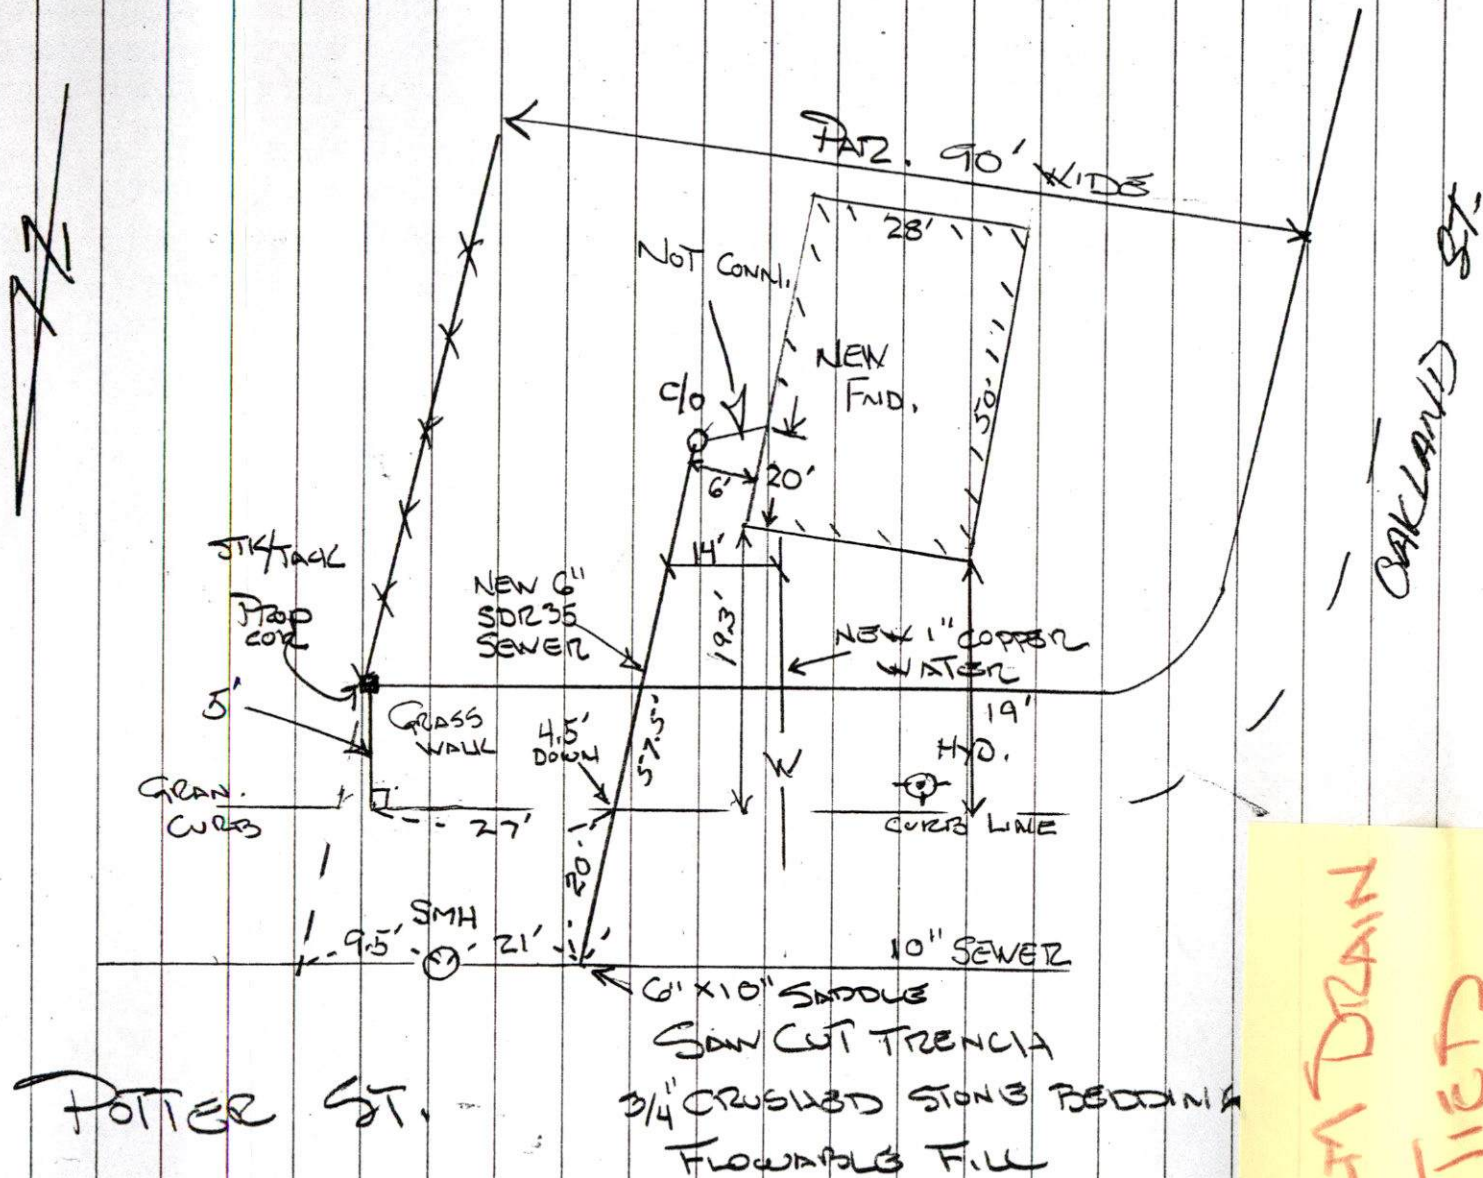 N
PAR. 90' WIDE
OAKLAND ST.
28'
NOT CONN.
NEW
FND.
50'
C/O
6'
20'
14'
STK/TACK
PROP
COR
NEW 6"
SDR35
SEWER
19.3'
NEW 1" COPPER
WATER
5'
GRASS
WALK
4.5'
DOWN
57.5'
W
19'
HYD.
GRAN.
CURB
27'
CURB LINE
20'
9.5'
SMH
21'
10" SEWER
6" X 10" SADDLE
SAW CUT TRENCH
3/4" CRUSHED STONE BEDDING
FLOWABLE FILL
POTTER ST.
DRAIN